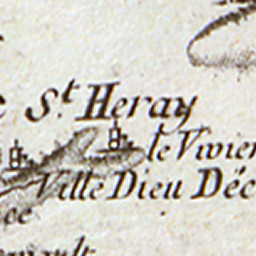 St. Heray
le Vivier
Ville Dieu Déc
ce